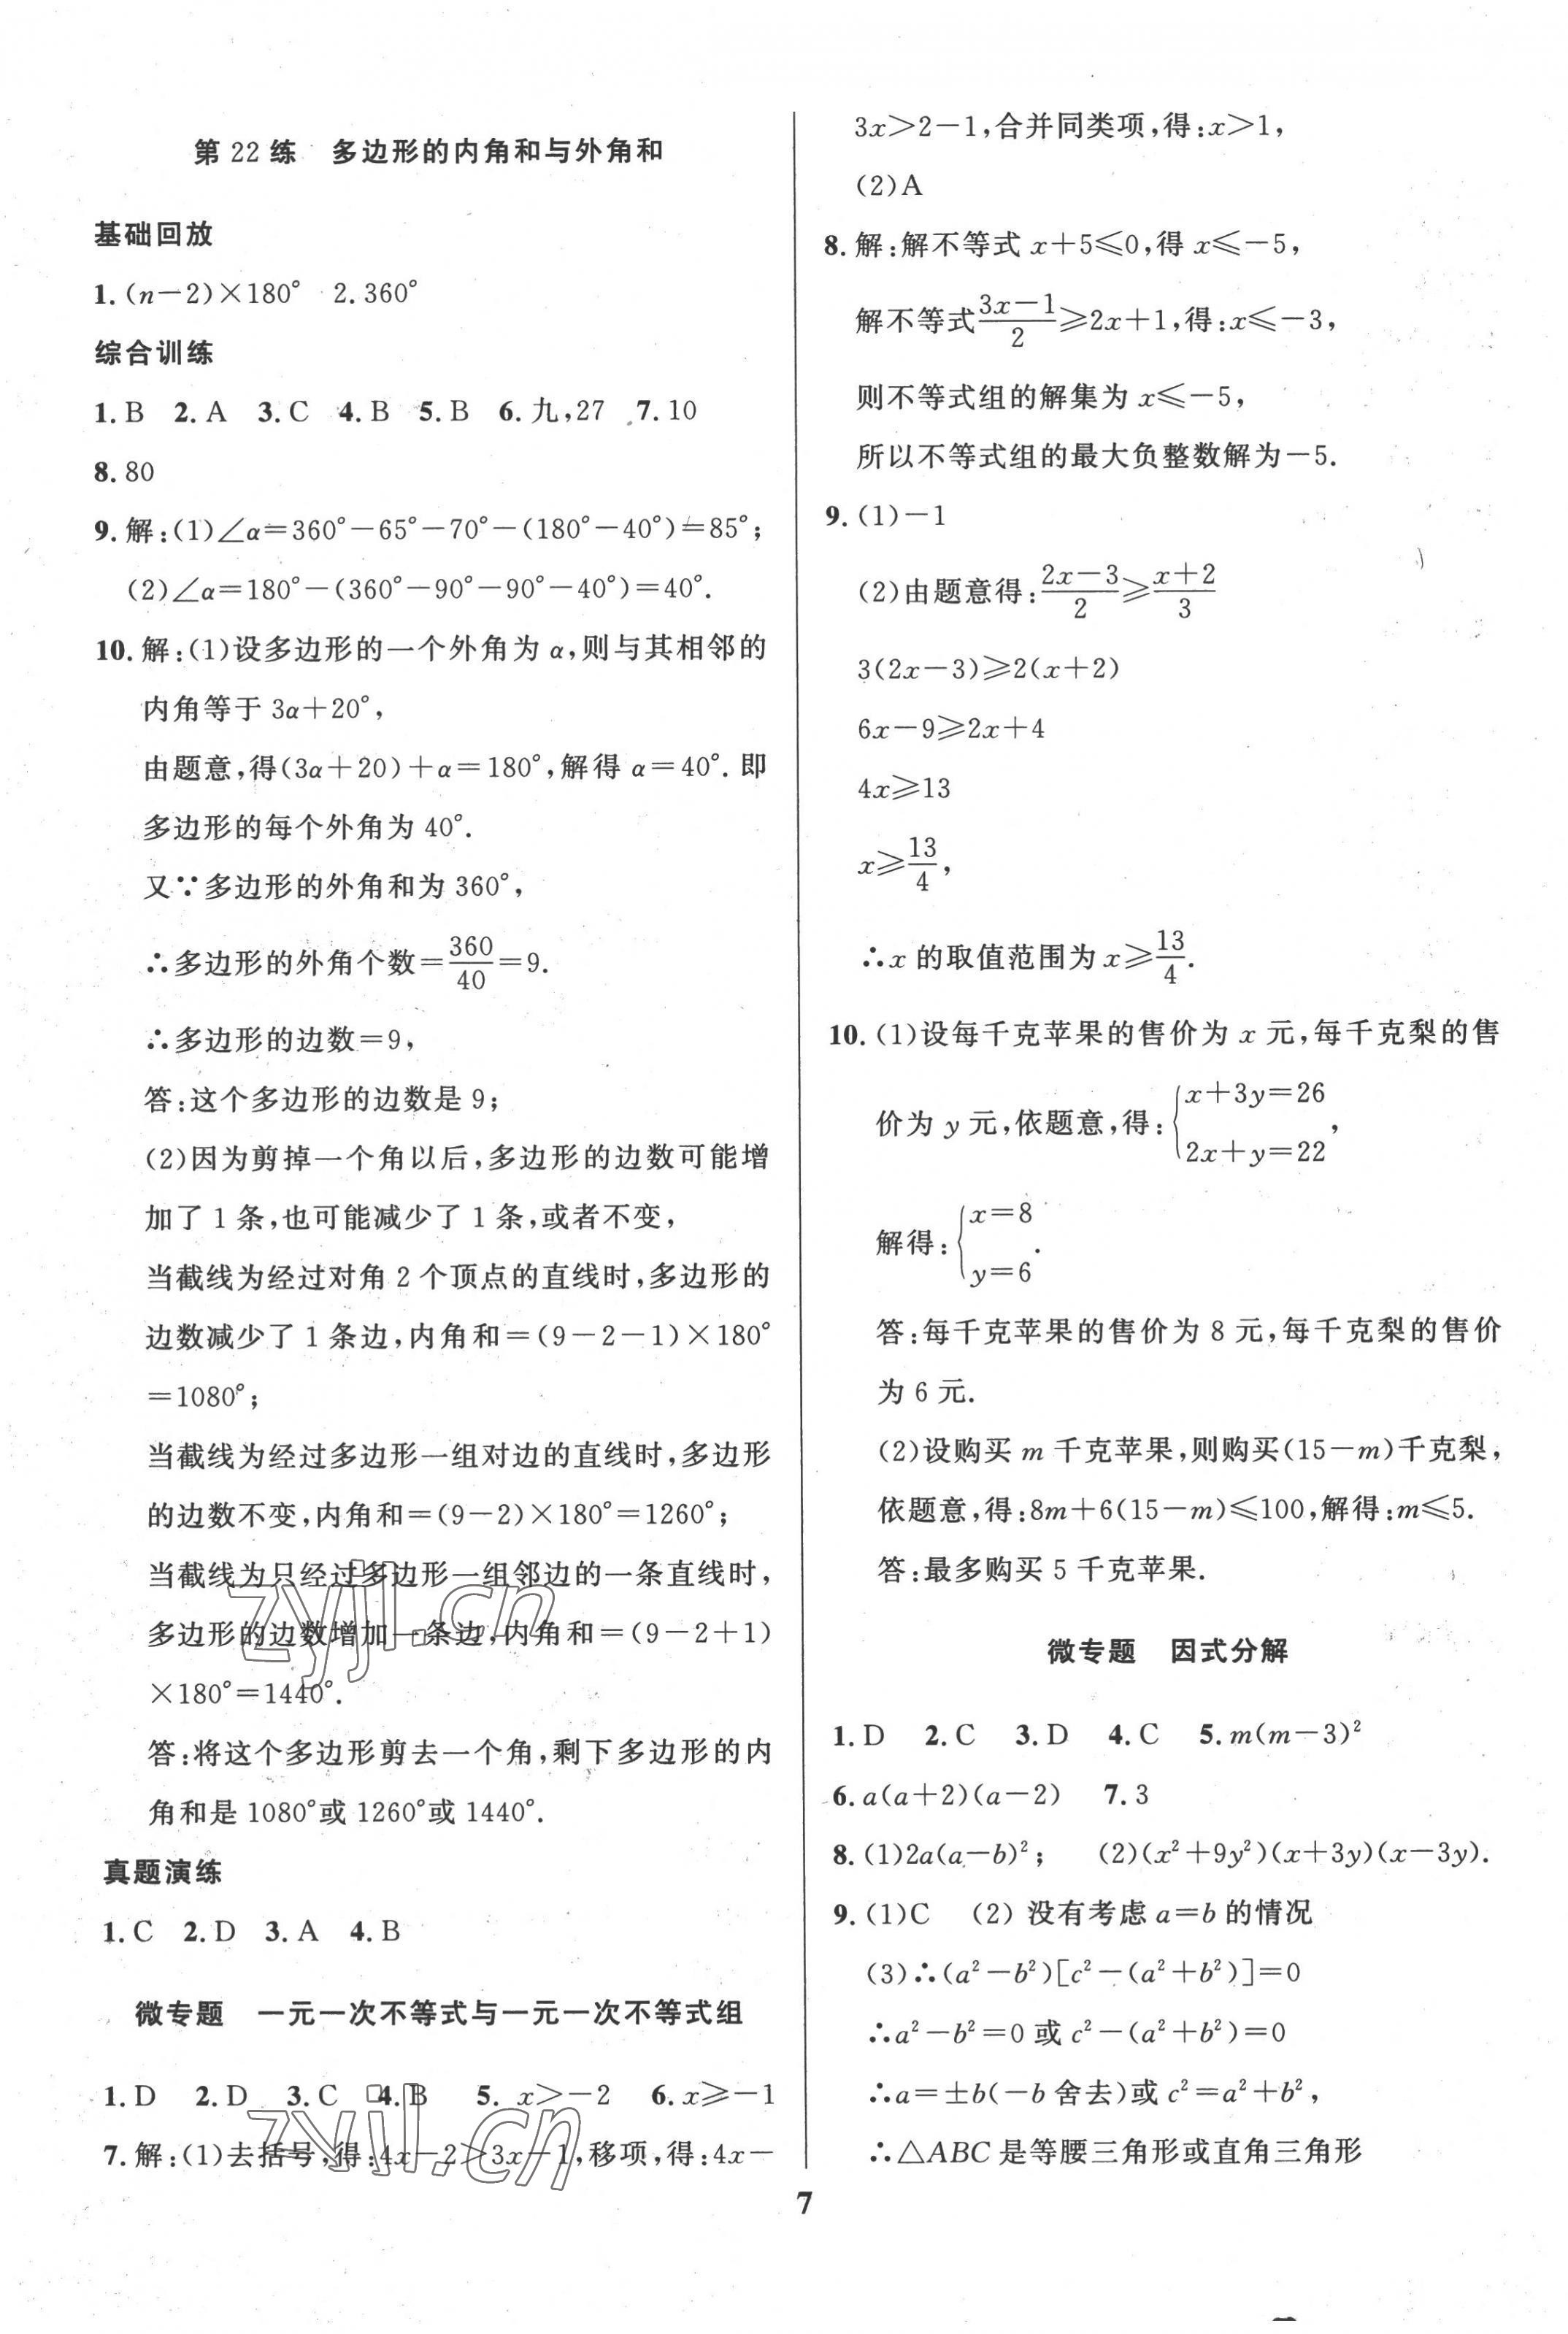 第 22 练　多边形的内角和与外角和
基础回放
1. (n－2)×180°　2. 360°
综合训练
1. B　2. A　3. C　4. B　5. B　6. 九,27　7. 10
8. 80
9. 解:(1)∠α＝360°－65°－70°－(180°－40°)＝85°;
(2)∠α＝180°－(360°－90°－90°－40°)＝40°.
10. 解:(1)设多边形的一个外角为 α,则与其相邻的
内角等于 3α＋20°,
由题意,得(3α＋20)＋α＝180°,解得 α＝40°. 即
多边形的每个外角为 40°.
又∵多边形的外角和为 360°,
∴多边形的外角个数＝360/40＝9.
∴多边形的边数＝9,
答:这个多边形的边数是 9;
(2)因为剪掉一个角以后,多边形的边数可能增
加了 1 条,也可能减少了 1 条,或者不变,
当截线为经过对角 2 个顶点的直线时,多边形的
边数减少了 1 条边,内角和＝(9－2－1)×180°
＝1080°;
当截线为经过多边形一组对边的直线时,多边形
的边数不变,内角和＝(9－2)×180°＝1260°;
当截线为只经过多边形一组邻边的一条直线时,
多边形的边数增加一条边,内角和＝(9－2＋1)
×180°＝1440°.
答:将这个多边形剪去一个角,剩下多边形的内
角和是 1080°或 1260°或 1440°.
真题演练
1. C　2. D　3. A　4. B
微专题　一元一次不等式与一元一次不等式组
1. D　2. D　3. C　4. B　5. x＞－2　6. x≥－1
7. 解:(1)去括号,得:4x－2＞3x－1,移项,得:4x－
3x＞2－1,合并同类项,得:x＞1,
(2)A
8. 解:解不等式 x＋5≤0,得 x≤－5,
解不等式(3x－1)/2≥2x＋1,得:x≤－3,
则不等式组的解集为 x≤－5,
所以不等式组的最大负整数解为－5.
9. (1)－1
(2)由题意得:(2x－3)/2≥(x＋2)/3
3(2x－3)≥2(x＋2)
6x－9≥2x＋4
4x≥13
x≥13/4,
∴x 的取值范围为 x≥13/4.
10. (1)设每千克苹果的售价为 x 元,每千克梨的售
价为 y 元,依题意,得:{x＋3y＝26
2x＋y＝22,
解得:{x＝8
y＝6.
答:每千克苹果的售价为 8 元,每千克梨的售价
为 6 元.
(2)设购买 m 千克苹果,则购买(15－m)千克梨,
依题意,得:8m＋6(15－m)≤100,解得:m≤5.
答:最多购买 5 千克苹果.
微专题　因式分解
1. D　2. C　3. D　4. C　5. m(m－3)²
6. a(a＋2)(a－2)　7. 3
8. (1)2a(a－b)²;　(2)(x²＋9y²)(x＋3y)(x－3y).
9. (1)C　(2) 没有考虑 a＝b 的情况
(3)∴(a²－b²)[c²－(a²＋b²)]＝0
∴a²－b²＝0 或 c²－(a²＋b²)＝0
∴a＝±b(－b 舍去)或 c²＝a²＋b²,
∴△ABC 是等腰三角形或直角三角形
7
zyjl.cn
zyjl.cn